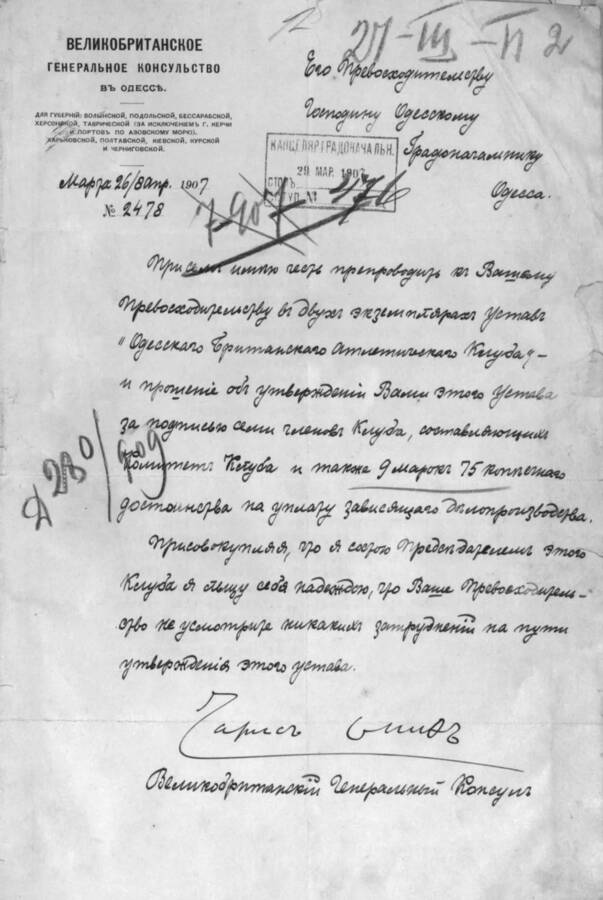 27-III-П 2
ВЕЛИКОБРИТАНСКОЕ
ГЕНЕРАЛЬНОЕ КОНСУЛЬСТВО
ВЪ ОДЕССѢ.
ДЛЯ ГУБЕРНІЙ: ВОЛЫНСКОЙ, ПОДОЛЬСКОЙ, БЕССАРАБСКОЙ,
ХЕРСОНСКОЙ, ТАВРИЧЕСКОЙ (ЗА ИСКЛЮЧЕНІЕМЪ Г. КЕРЧИ
И ПОРТОВЪ ПО АЗОВСКОМУ МОРЮ),
ХАРЬКОВСКОЙ, ПОЛТАВСКОЙ, КІЕВСКОЙ, КУРСКОЙ
И ЧЕРНИГОВСКОЙ.
Марта 26/8 апр. 1907
№ 2478
Его Превосходительству
Господину Одесскому
Градоначальнику
Одесса.
КАНЦЕЛЯР. ГРАДОНАЧАЛЬН.
29 МАР. 1907
СТОЛЪ
ВСТУП. № 476
7-907
При семъ имѣю честь препроводить къ Вашему
Превосходительству въ двухъ экземплярахъ Уставъ
"Одесскаго Британскаго Атлетическаго Клуба" -
и прошеніе объ утвержденіи Вами этого Устава
за подписью семи членовъ Клуба, составляющихъ
Комитетъ Клуба и также 9 марокъ 75 копѣечнаго
достоинства на уплату зависящаго дѣлопроизводства.
Д 280/909
Присовокупляя, что я состою Предсѣдателемъ этого
Клуба я льщу себя надеждою, что Ваше Превосходитель-
ство не усмотрите никакихъ затрудненій на пути
утвержденія этого устава.
Чарльсъ Смитъ
Великобританскій Генеральный Консулъ